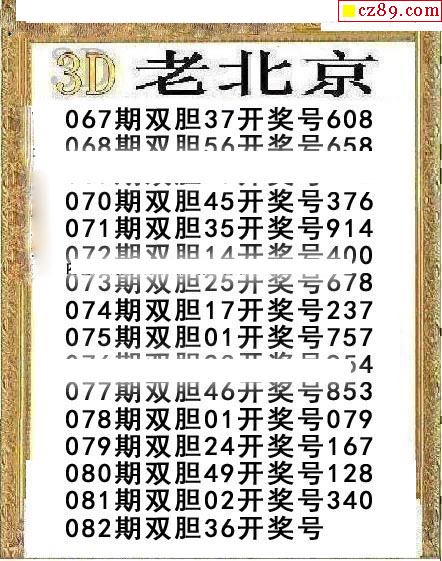 cz89.com
3D 老北京
067期双胆37开奖号608
068期双胆56开奖号658
070期双胆45开奖号376
071期双胆35开奖号914
072期双胆14开奖号400
073期双胆25开奖号678
074期双胆17开奖号237
075期双胆01开奖号757
期双胆 开奖号 54
077期双胆46开奖号853
078期双胆01开奖号079
079期双胆24开奖号167
080期双胆49开奖号128
081期双胆02开奖号340
082期双胆36开奖号